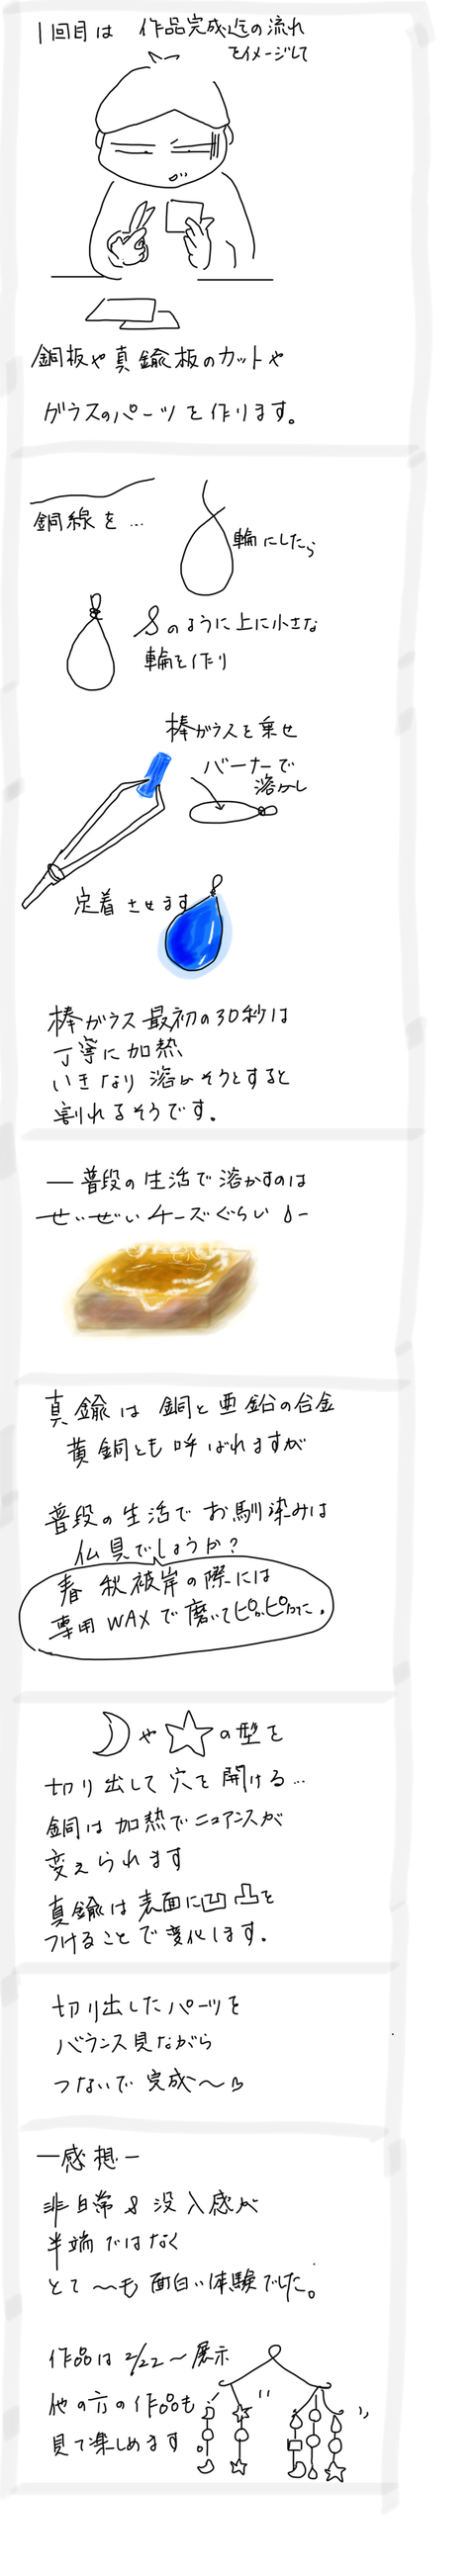 1回目は 作品完成迄の流れ
をイメージして
銅板や真鍮板のカットや
ガラスのパーツを作ります。
銅線を…
輪にしたら
8のように上に小さな
輪を作り
棒ガラスを乗せ
バーナーで
溶かし
定着させます
棒ガラス最初の30秒は
丁寧に加熱
いきなり溶かそうとすると
割れるそうです。
ー普段の生活で溶かすのは
せいぜいチーズぐらいー
真鍮は銅と亜鉛の合金
黄銅とも呼ばれますが
普段の生活でお馴染みは
仏具でしょうか?
春秋彼岸の際には
専用WAXで磨いてピカピカに.
や の型を
切り出して穴を開ける…
銅は加熱でニュアンスが
変えられます
真鍮は表面に凹凸を
つけることで変化します.
切り出したパーツを
バランス見ながら
つないで完成〜
ー感想ー
非日常&没入感が
半端ではなく
とて〜も面白い体験でした。
作品は2/22〜展示
他の方の作品も
見て楽しめます。